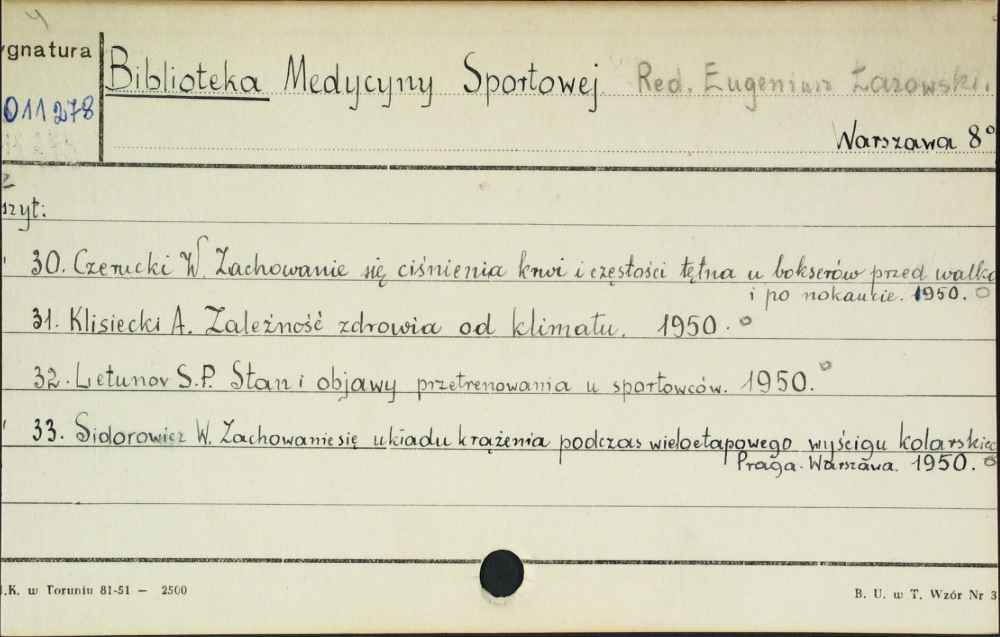 4
ygnatura
Biblioteka Medycyny Sportowej Red. Eugeniusz Łazowski.
011278
Warszawa 8°
szyt:
30. Czerucki W. Zachowanie się ciśnienia krwi i częstości tętna u bokserów przed walką
i po nokaucie. 1950.
31. Klisiecki A. Zależność zdrowia od klimatu. 1950.
32. Letunov S.P. Stan i objawy przetrenowania u sportowców. 1950.
33. Sidorowicz W. Zachowanie się układu krążenia podczas wieloetapowego wyścigu kolarskieg
Praga-Warszawa. 1950.
.K. w Toruniu 81-51 — 2500
B. U. w T. Wzór Nr 3